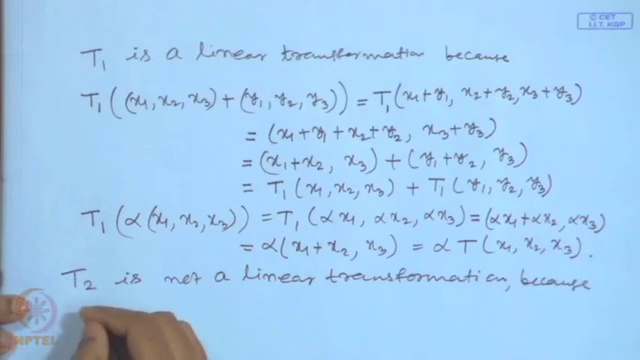 © CET
I.I.T. KGP
T₁ is a linear transformation because
T₁((x₁, x₂, x₃) + (y₁, y₂, y₃)) = T₁(x₁+y₁, x₂+y₂, x₃+y₃)
= (x₁+y₁+x₂+y₂, x₃+y₃)
= (x₁+x₂, x₃) + (y₁+y₂, y₃)
= T₁(x₁, x₂, x₃) + T₁(y₁, y₂, y₃)
T₁(α(x₁, x₂, x₃)) = T₁(αx₁, αx₂, αx₃) = (αx₁+αx₂, αx₃)
= α(x₁+x₂, x₃) = α T(x₁, x₂, x₃).
T₂ is not a linear transformation, because
NPTEL